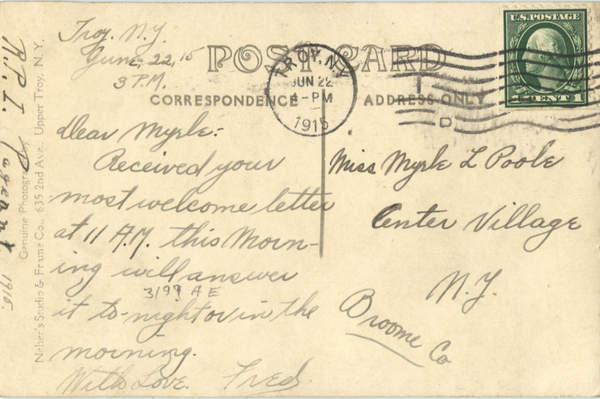 Troy. N.Y.
June, 22, 15
3 P.M.
POST CARD
CORRESPONDENCE
ADDRESS ONLY
TROY, N.Y.
JUN 22
-PM
1915
U.S. POSTAGE
CENT 1
Dear Myrle:-
Received your
most welcome letter
at 11 A.M. this Morn-
ing will answer
3199 A E
it to-night or in the
morning.
With Love. Fred.
Miss Myrle L Poole
Center Village
N.Y.
Broome Co
R.P.I. Pageant 1915.
Genuine Photograph
Studio & Frame Co., 635 2nd Ave., Upper Troy, N.Y.